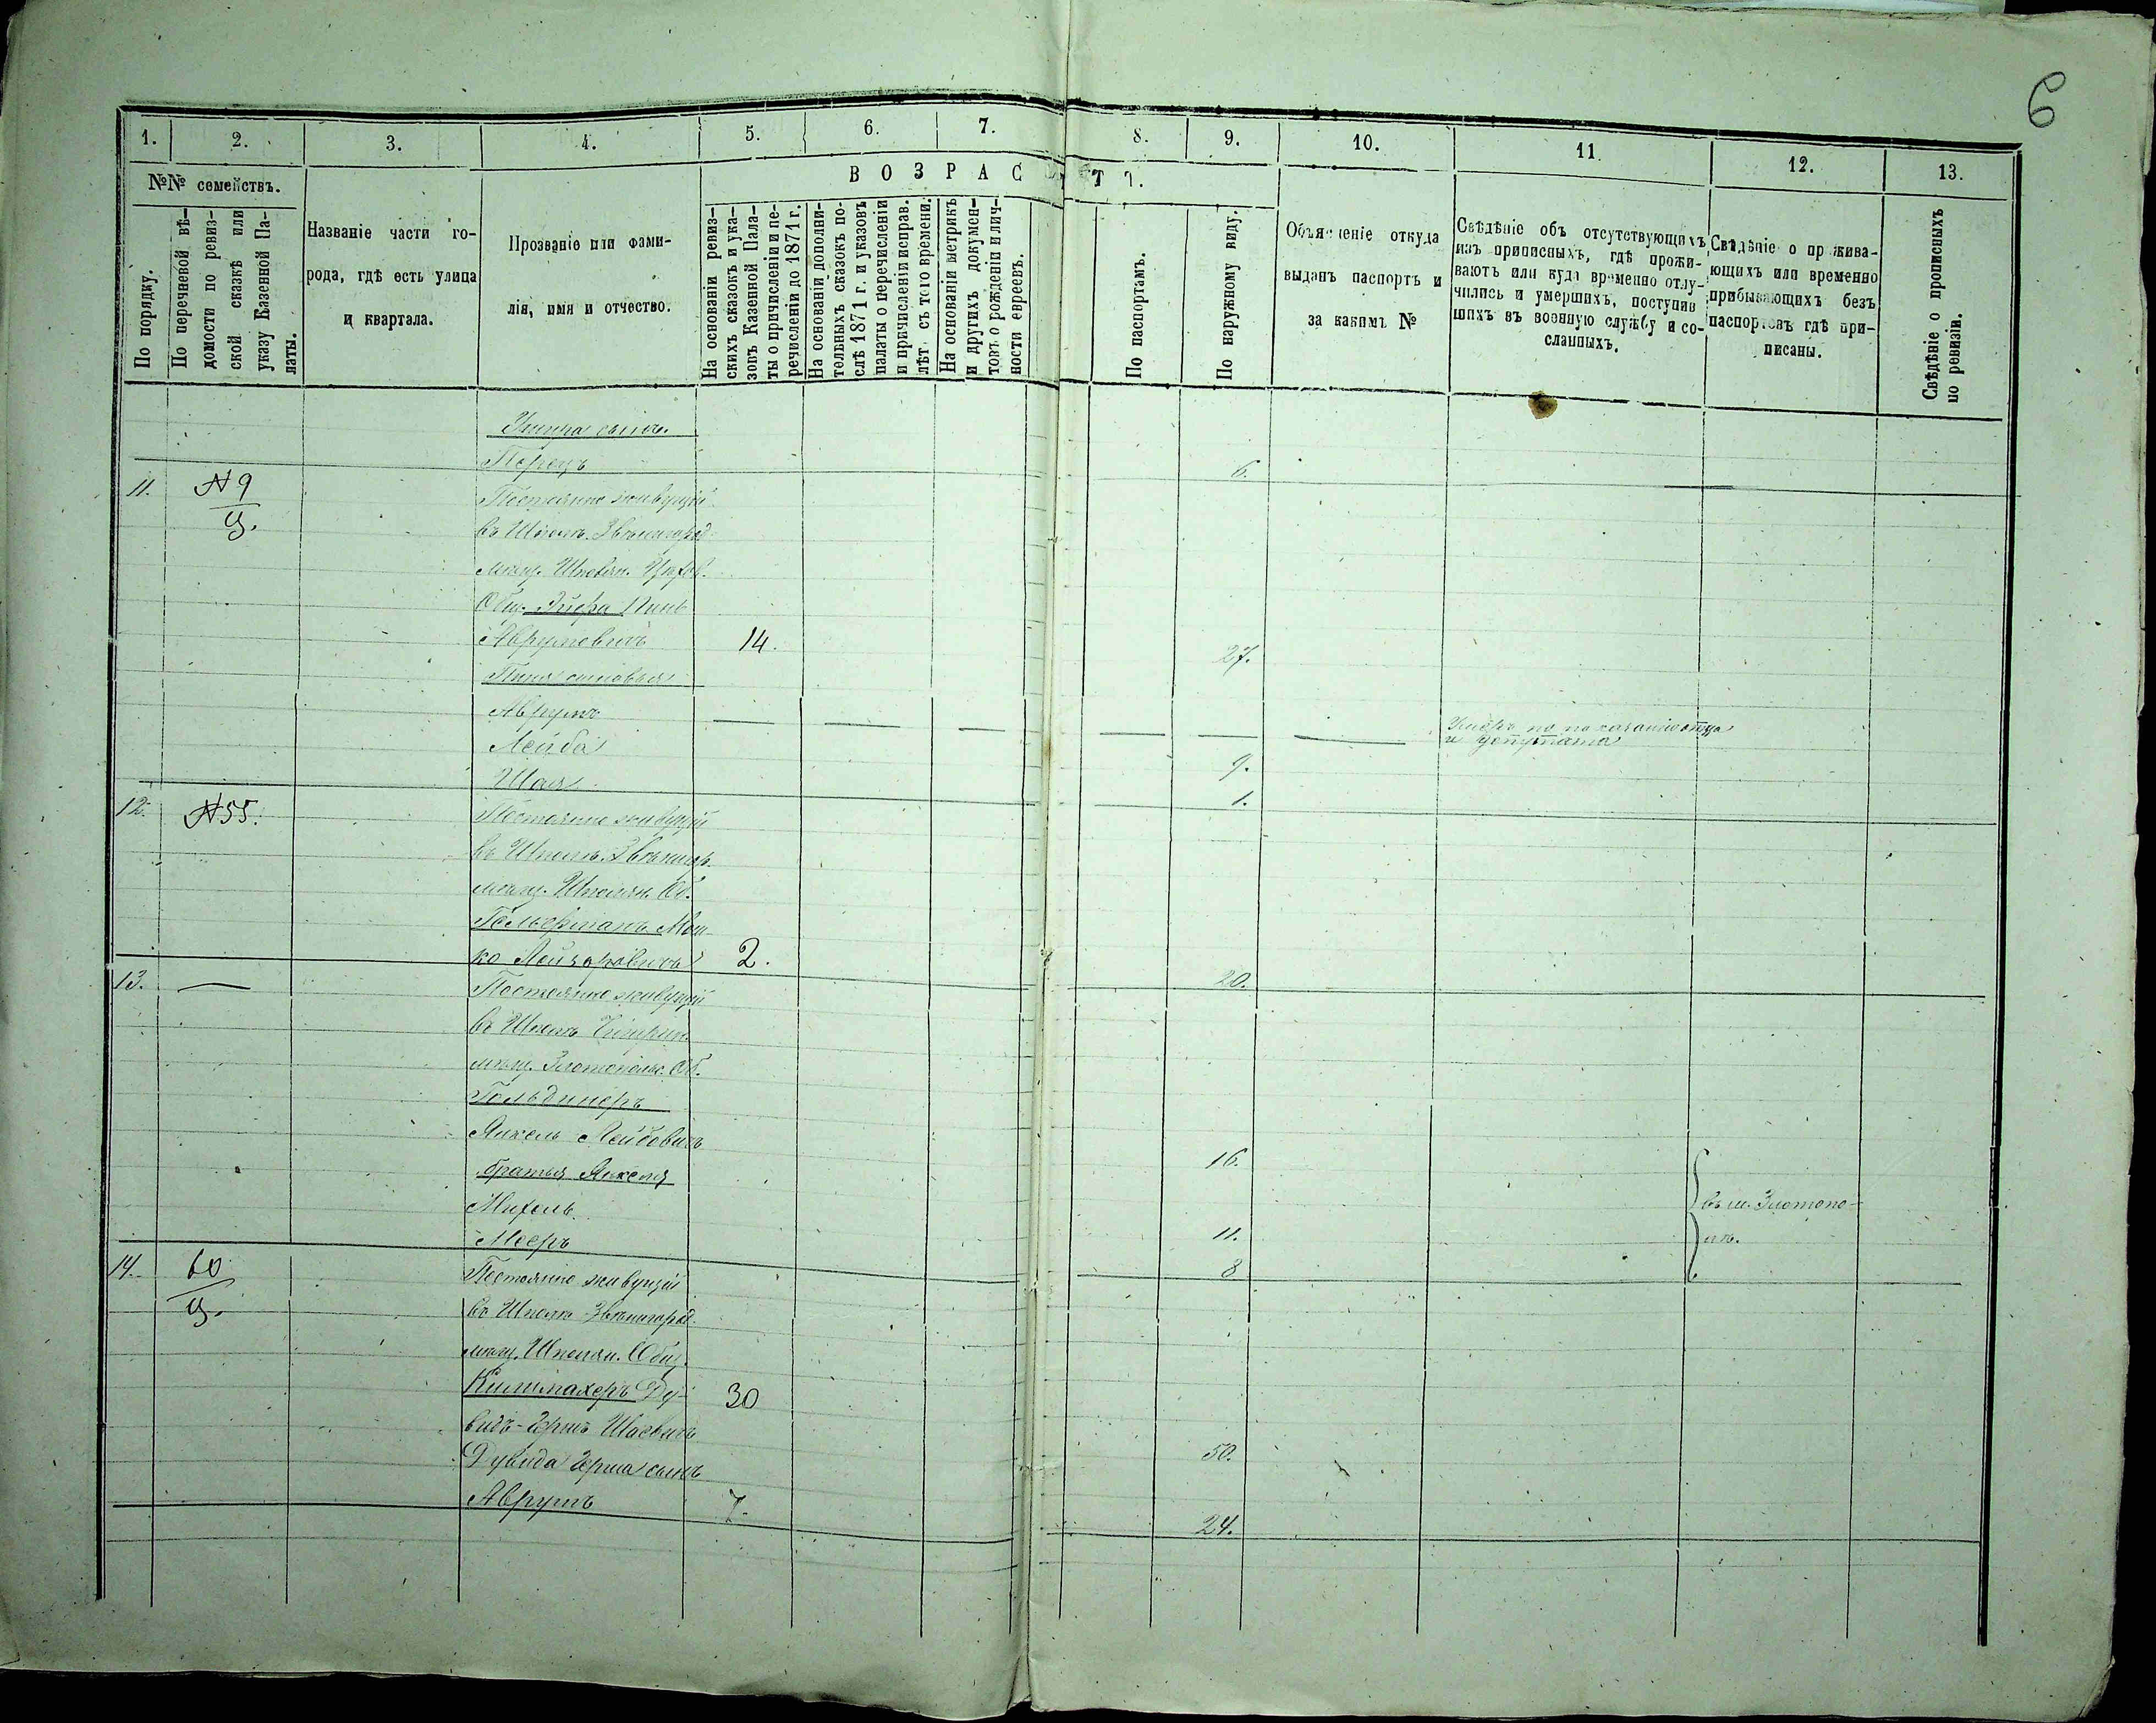 6
1. 2. 3. 4. 5. 6. 7. 8. 9. 10. 11. 12. 13.
№№ семействъ.
ВОЗРАСТЪ.
По порядку.
По перечневой вѣ-
домости по ревиз-
ской сказкѣ или
указу Казенной Па-
латы.
Названіе части го-
рода, гдѣ есть улица
и квартала.
Прозваніе или фами-
лія, имя и отчество.
На основаніи ревиз-
скихъ сказокъ и ука-
зовъ Казенной Пала-
ты о причисленіи и пе-
речисленіи до 1871 г.
На основаніи дополни-
тельныхъ сказокъ по-
слѣ 1871 г. и указовъ
палаты о перечисленіи
и причисленіи исправ.
лѣт. съ того времени.
На основаніи метрикъ
и другихъ докумен-
товъ о рожденіи и лич-
ности евреевъ.
По паспортамъ.
По наружному виду.
Объясненіе откуда
выданъ паспортъ и
за какимъ №
Свѣдѣніе объ отсутствующихъ
изъ приписныхъ, гдѣ прожи-
ваютъ или куда временно отлу-
чились и умершихъ, поступив
шихъ въ военную службу и со-
сланныхъ.
Свѣдѣніе о прожива-
ющихъ или временно
прибывающихъ безъ
паспортовъ гдѣ при-
писаны.
Свѣдѣніе о прописныхъ
по ревизіи.
сынъ.
Перецъ 6.
11. №9
Постоянно живущій
въ Шполѣ. Звенигород.
мѣщ.
Общ. Пинь
Аврумовичъ 14. 27.
Пиня сыновья
Аврумъ — — — — — — Умеръ по показанію отца
и депутата
Лейба 9.
Шая 1.
12. №55. Постоянно живущій
въ Шполѣ. Звенигор.
мѣщ. Шполян. Об.
Гельферманъ Мош-
ко Лейзоровичъ 2. 20.
13. — Постоянно живущій
въ Шполѣ Чигирин.
мѣщ. Златопольс. Об.
Гольдинеръ
Янкель Лейбовичъ 16.
братья Янкеля
Михель 11. въ м. Златопо-
лѣ.
Мееръ 8
14. 60
Постоянно живущій
въ Шполѣ Звенигород.
мѣщ. Шполян. Общ.
Килимахеръ Ду- 30
видъ-Гершъ Шаевичъ 50.
Дувида Герша сынъ
Аврумъ 7. 24.